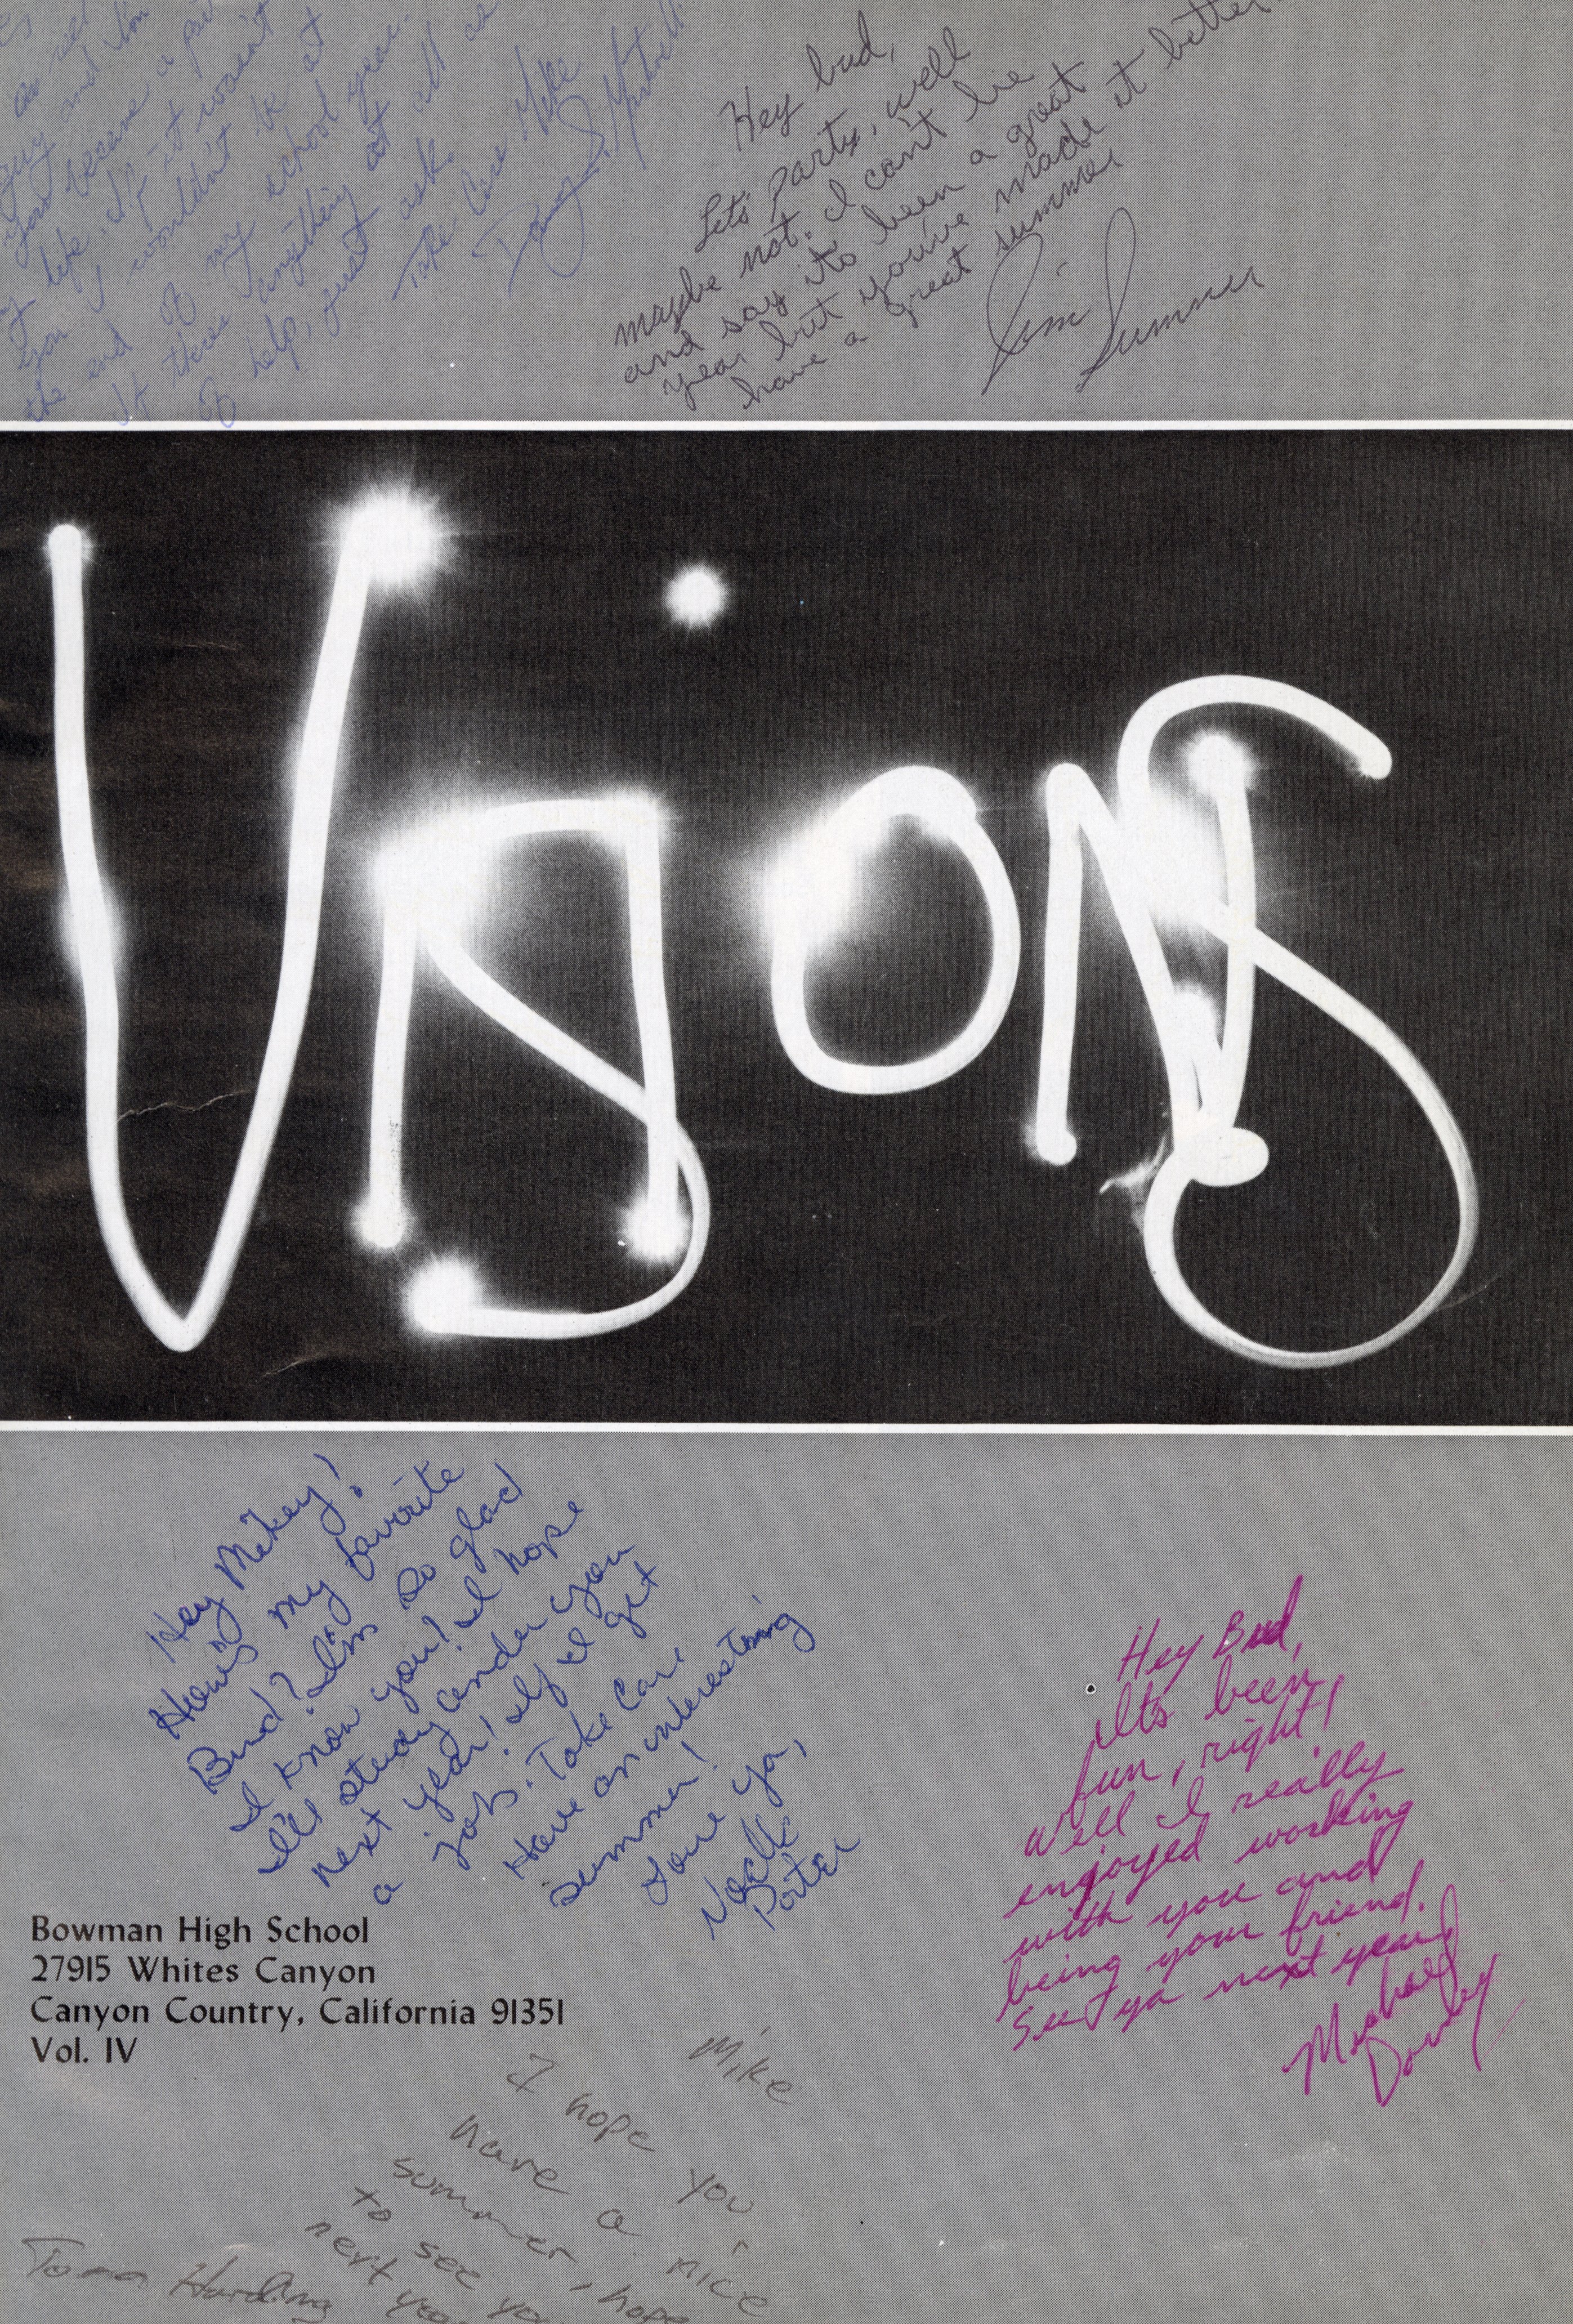 as
guy and
you became a
my life. If it wasn't
you I wouldn't be at
the end of my school year.
If theres anything at all
help, just ask.
Take Care Mike
Hey bud,
Lets party, well
maybe not. I can't lie
and say its been a great
year but you've made it better
have a great summer
Jim
Summer
Visions
Hey Mikey!
How's my favorite
Bud? I'm so glad
I know you! I hope
I'll study under you
next year! If I get
a job. Take Care
Have an interesting
summer!
Love ya,
Noelle
Porter
Hey Bud,
Its been
fun, right!
Well I really
enjoyed working
with you and
being your friend.
See ya next year
Michael
Bowman High School
27915 Whites Canyon
Canyon Country, California 91351
Vol. IV
Mike
I hope you
have a nice
summer, hope
to see you
next year
Harding